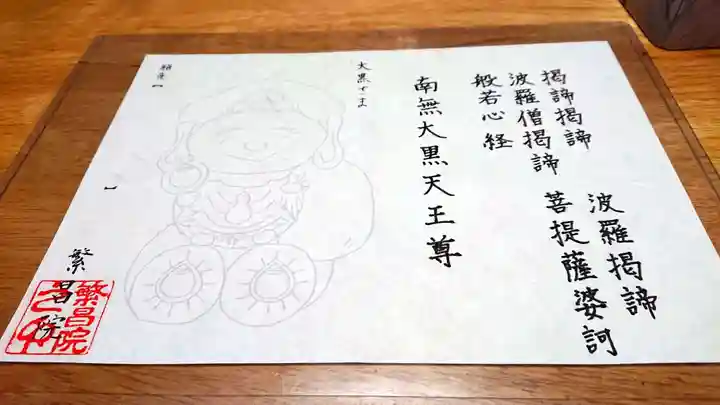 揭諦揭諦
波羅揭諦
波羅僧揭諦
菩提薩婆訶
般若心経
南無大黒天王尊
大黒さま
願意【
】
繁昌院
繁昌院